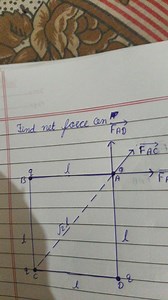 Find net force on
F_AD
F_AC
q l q
B A F_A
l √2 l l
q C l D q